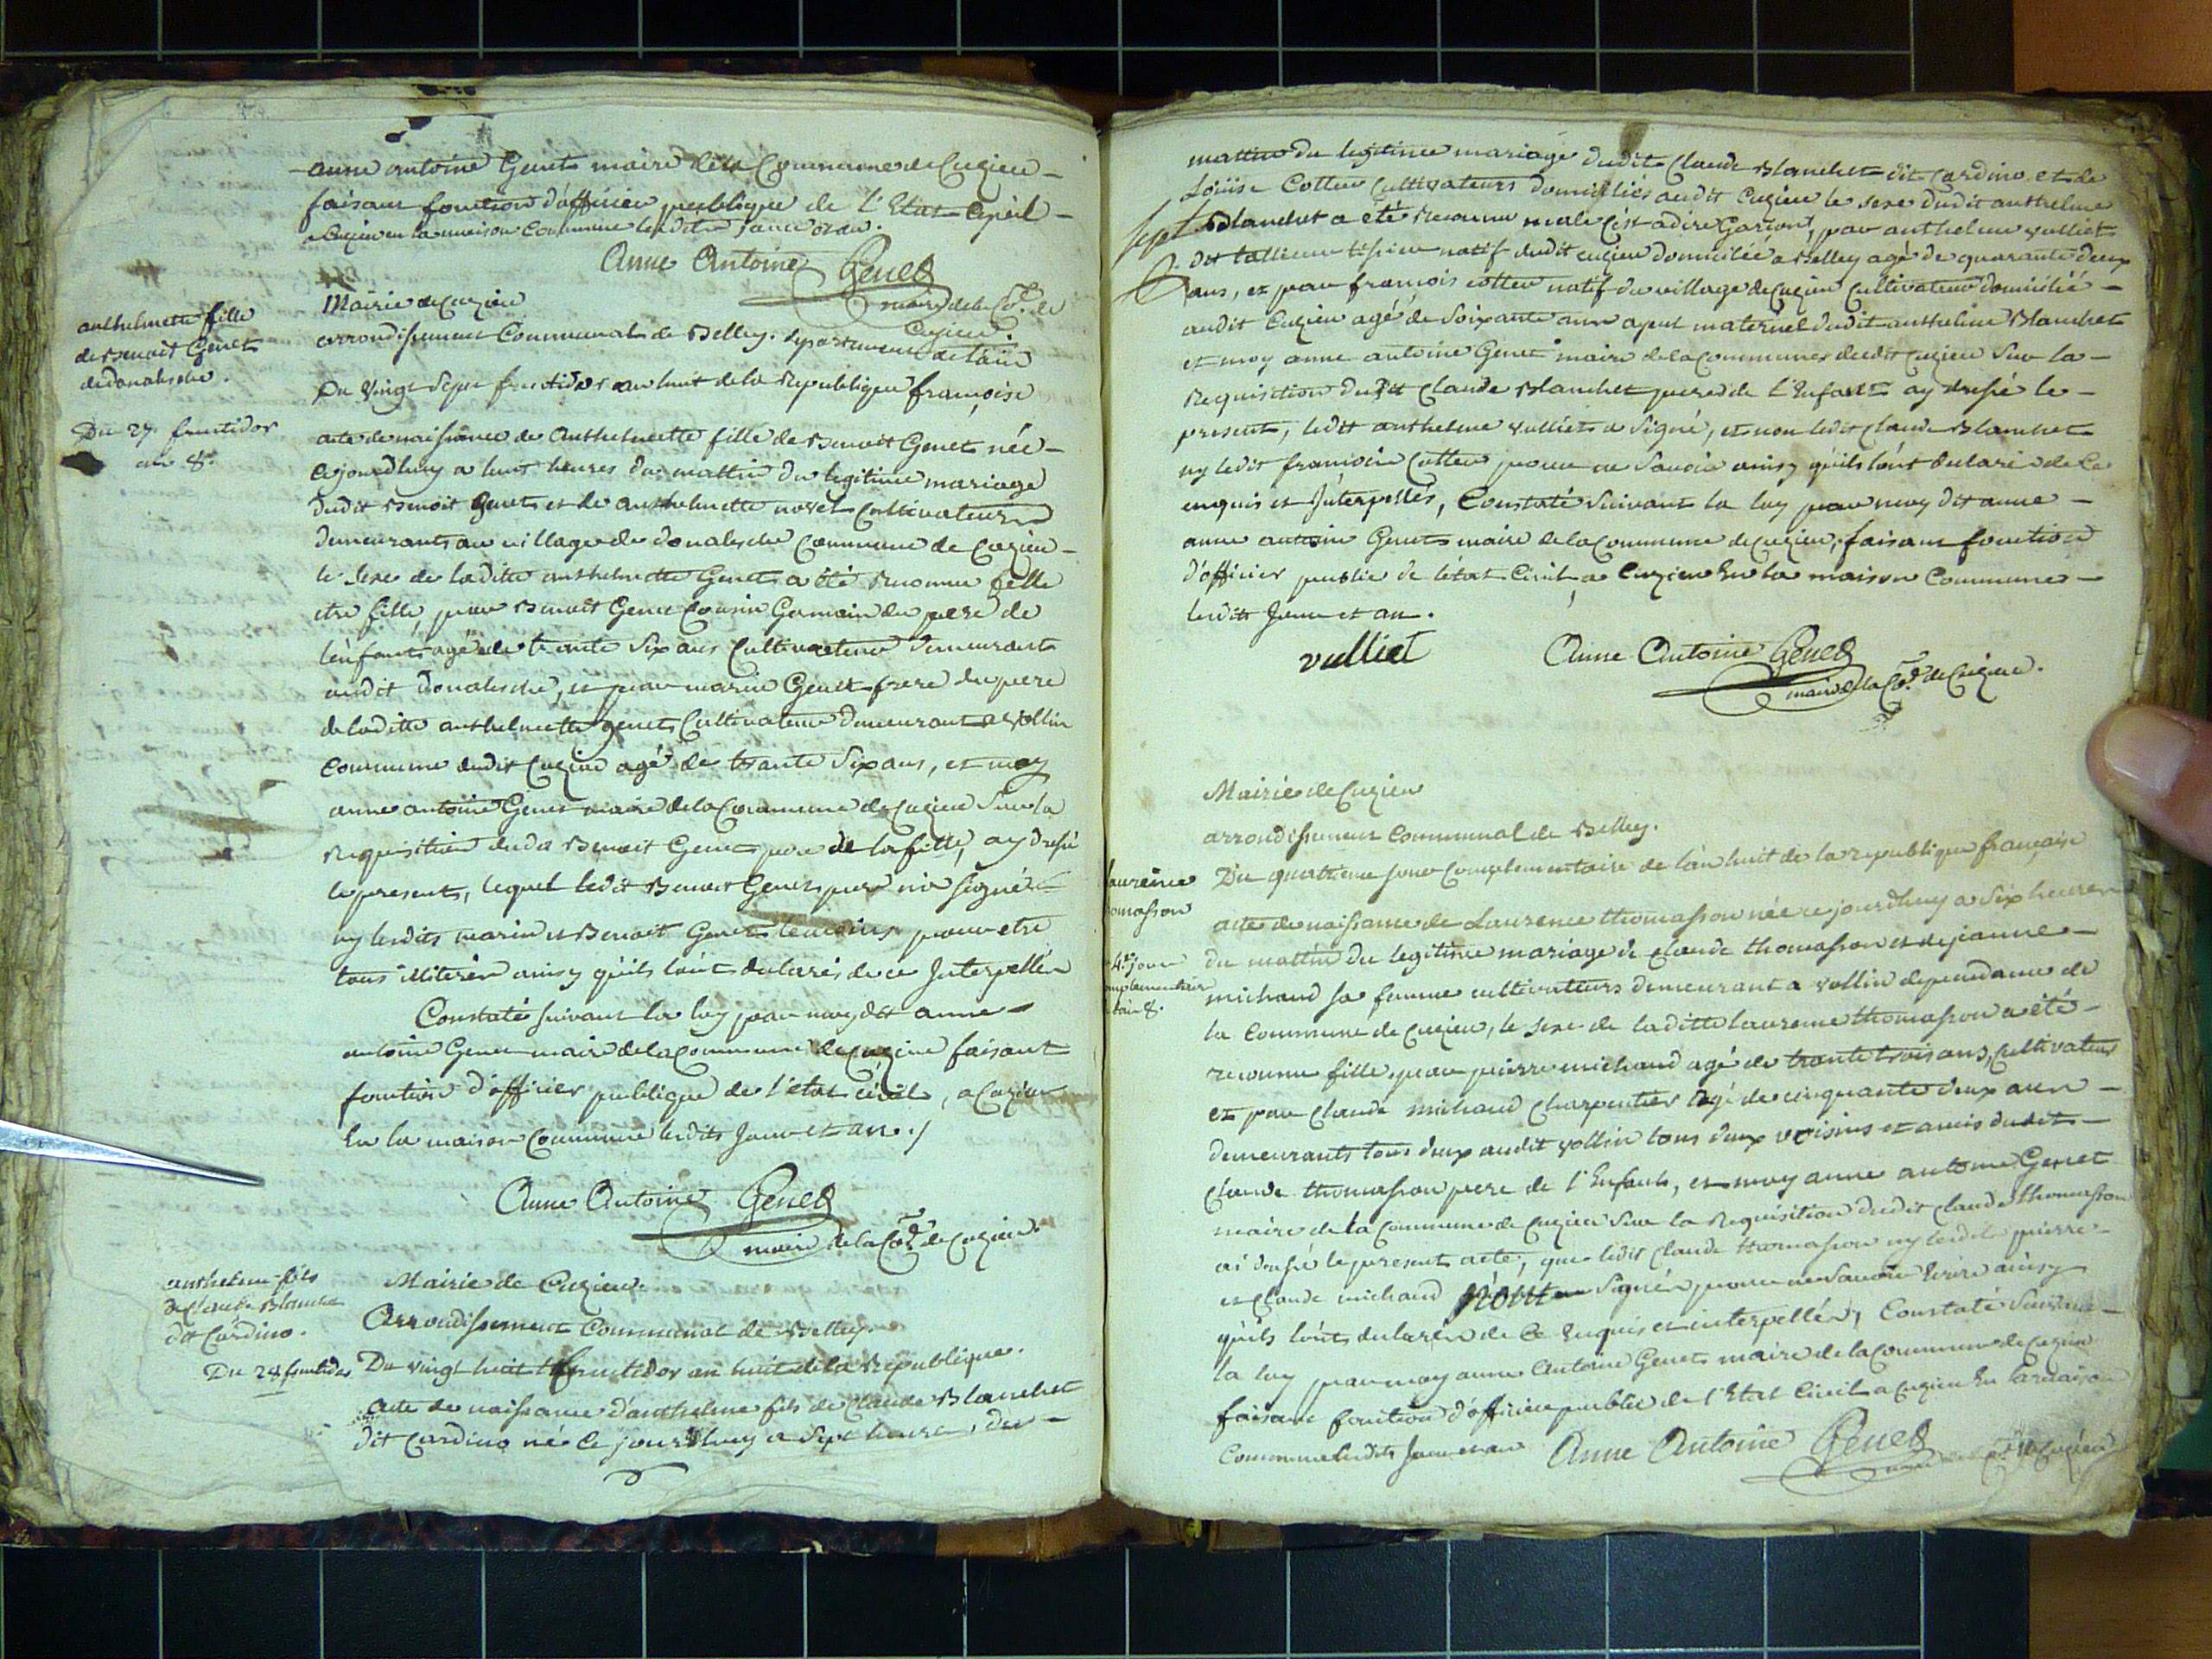 anne antoine Genet maire de la Commune de Cuzieu
faisant fonction d'officier publique de l'Etat Civil
a Cuzieu en la maison Commune lesdits jour et an.
Anne Antoine Genet
maire de la Co.e de
Cuzieu.
anthelmette fille
de Benoit Genet
de donalèche.
Du 27. fructidor
an 8.
Mairie de Cuzieu
arrondissement Communal de Belley. departement de lain
Du vingt Sept fructidor an huit de la Republique françoise
acte de naissance de Anthelmette fille de Benoit Genet née
Cejourdhuy a huit heures du mattin du legitime mariage
dudit Benoit Genet et de anthelmette novet Cultivateurs
demeurants au village de donalèche Commune de Cuzieu
le Sexe de laditte anthelmette Genet a été reconnu
etre fille, par Benoit Genet Cousin Germain du pere de
lenfant agé de trente Six ans Cultivateur demeurant
audit donalèche, et par marin Genet frere du pere
de laditte anthelmette genet Cultivateur demeurant a vollin
Commune dudit Cuzieu agé de trante Six ans, et moy
anne antoine Genet maire de la Commune de Cuzieu Sur la
Requisition dudit Benoit Genet pere de la fille, ay dressé
le present, lequel ledit Benoit Genet pere n'a signé
ny lesdits marin et Benoit Genet temoins pour etre
tous illiterés ainsy qu'ils l'ont declarés de ce Interpellés
Constaté suivant la loy par moy dit anne
antoine Genet maire de la Commune de Cuzieu faisant
fonction d'officier publique de l'etat civil, a Cuzieu
En la maison Commune lesdits Jour et an ./
Anne Antoine Genet
maire de la Co.e de Cuzieu.
anthelme fils
de Claude Blanchet
dit Cardino.
Du 28 fructidor
Mairie de Cuzieu.
Arrondissement Communal de Belley.
Du vingt huit fructidor an huit de la Republique.
acte de naissance d'anthelme fils de Claude Blanchet
dit Cardino né Ce jourdhuy a Sept heures, du
mattin du legitime mariage dudit Claude Blanchet dit Cardino et de
Loüise Cottin Cultivateurs domiciliés audit Cuzieu le sexe dudit anthelme
sept Blanchet a eté Reconnu male C'est adire Garson, par anthelme vulliet
dit tissier natif dudit cuzieu domicilié a Belley agé de quarante deux
ans, et par francois cottin natif du village de Cuzieu Cultivateur domicilié
audit Cuzieu agé de Soixante ans ayeul maternel dudit anthelme Blanchet
et moy anne antoine Genet maire de la Commune dudit Cuzieu Sur la
Requisition dudit Claude Blanchet pere de l'Enfant ay dressé le
present, ledit anthelme vulliet a Signé, et non ledit Claude Blanchet
ny ledit francois Cottin pour ne Savoir ainsy qu'ils l'ont declaré de Ce
enquis et Interpellés, Constaté Suivant la loy par moy dit anne
anne antoine Genet maire de la Commune de Cuzieu, faisant fonction
d'officier public de létat Civil a Cuzieu En la maison Commune
lesdits Jour et an.
vulliet
Anne Antoine Genet
maire de la Co.e de Cuzieu.
Mairie de Cuzieu
arrondissement Communal de Belley.
laurence
omasson
4.e jour
omplementair
lan 8.
Du quatrieme jour Complementaire de l'an huit de la republique française
acte de naissance de Laurence thomasson née ce jourdhuy a Six heures
du mattin du legitime mariage de claude thomasson et de jeanne
michaud sa femme cultivateurs demeurant a vollin dependance de
la Commune de Cuzieu, le Sexe de laditte laurence thomasson a été
reconnu fille, par pierre michaud agé de trante trois ans, Cultivateur
et par claude michaud Charpentier agé de cinquante deux ans
demeurants tous deux audit vollin tous deux voisins et amis dudit
Claude thomasson pere de l'Enfant, et moy anne antoine Genet
maire de la Commune de Cuzieu Sur la Requisition dudit claude thomasson
ai dressé le present acte, que ledit Claude thomasson ny lesdits pierre
et Claude michaud n'ont Signés pour ne Savoir Ecrire ainsy
qu'ils l'ont declarés de Ce Enquis et interpellés, Constaté Suivant
la loy par moy anne Antoine Genet maire de la Commune de Cuzieu
faisant fonction d'officier public de l'Etat Civil a Cuzieu En la maison
Commune lesdits Jour et an Anne Antoine Genet
maire de la Co.e de Cuzieu